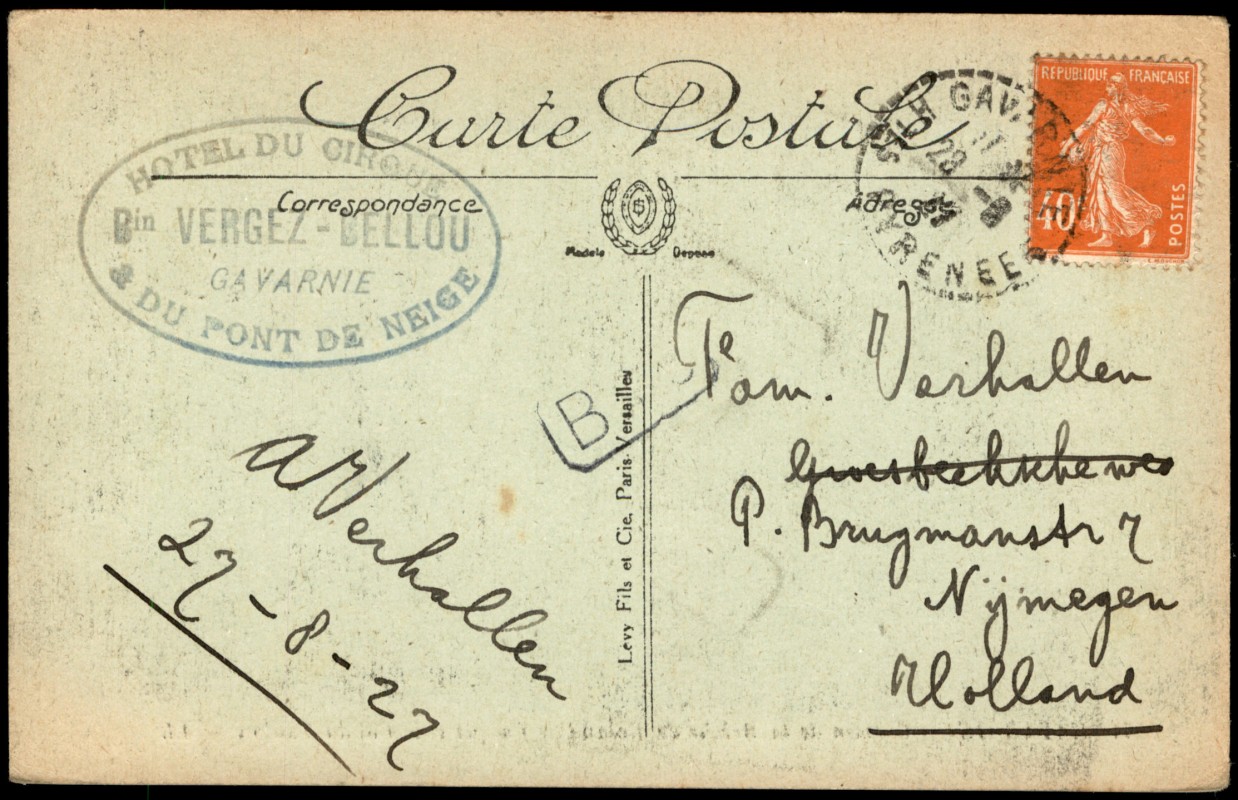 Carte Postale
HOTEL DU CIRQUE
Bin VERGEZ-BELLOU
GAVARNIE
& DU PONT DE NEIGE
Correspondance
Adresse
Modele Depose
GAVARNIE
PYRENEES
REPUBLIQUE FRANÇAISE
40
POSTES
B
Levy Fils et Cie, Paris-Versailles
Fam. Verhallen
P. Brugmanstr 7
Nijmegen
Holland
A Verhallen
27-8-27